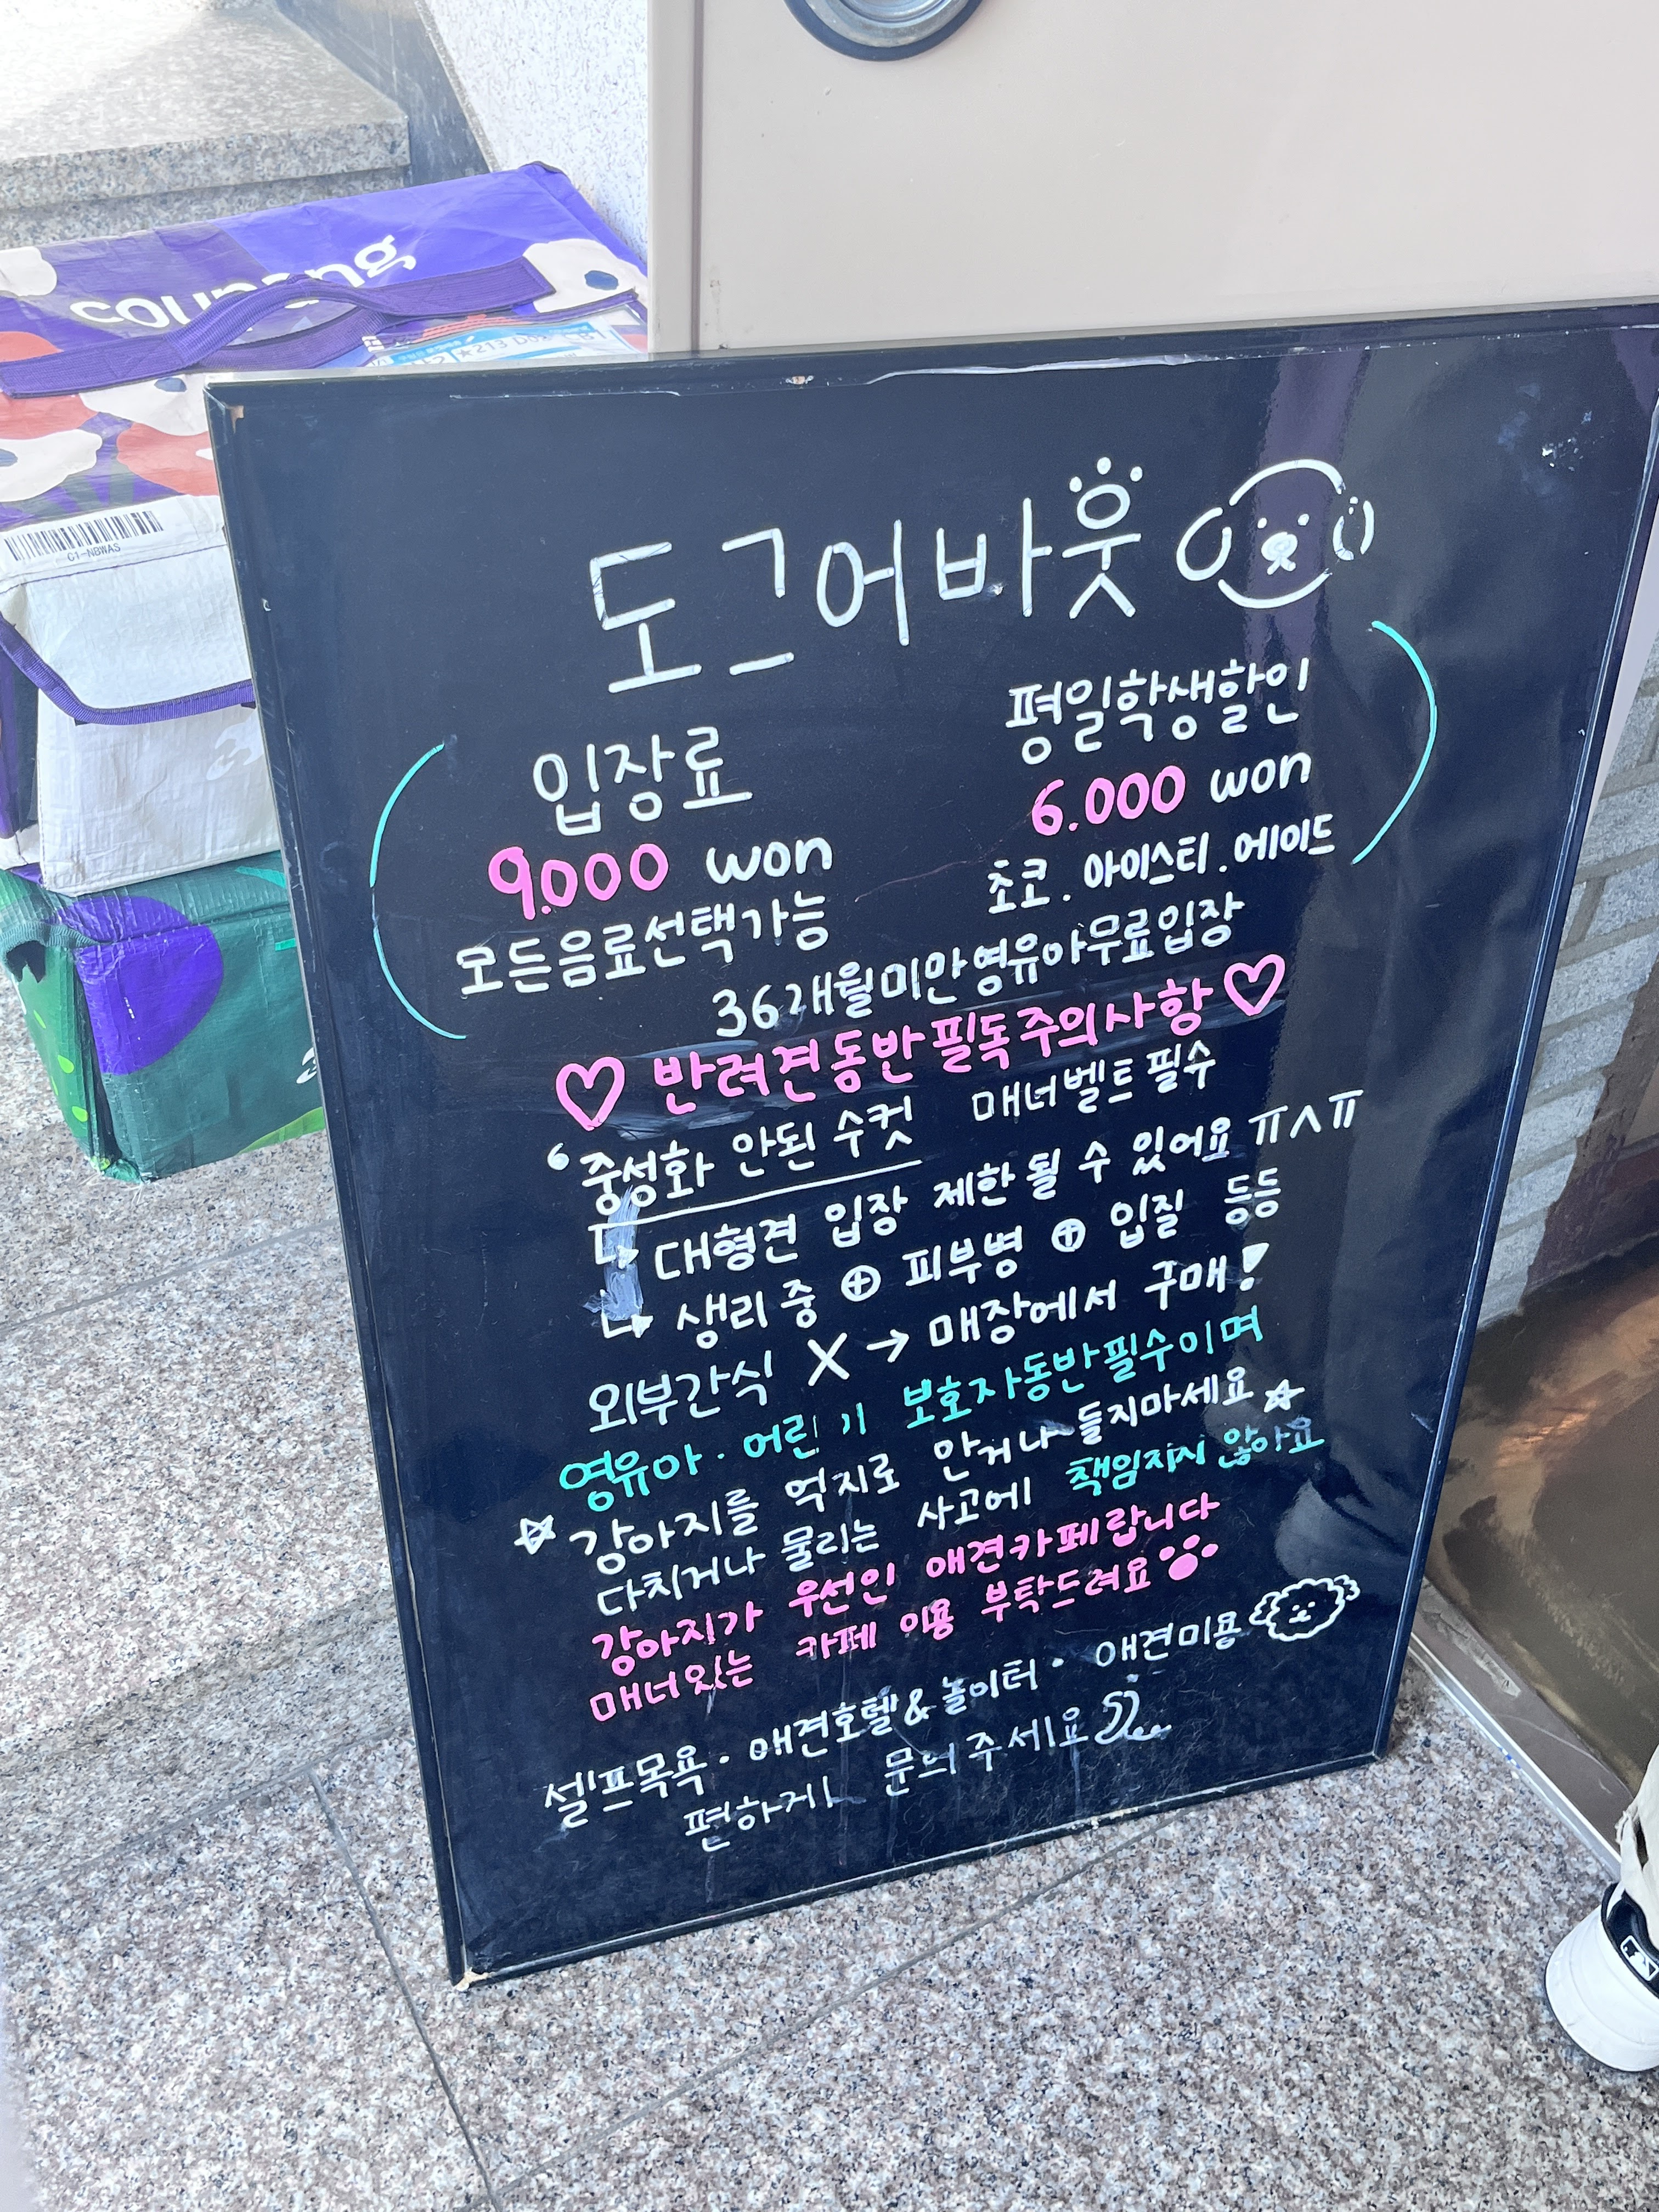 coupang
C1-NBWAS
도그어바웃
입장료
9.000 won
모든음료선택가능
평일학생할인
6.000 won
초코.아이스티.에이드
36개월미만영유아무료입장
♡ 반려견동반필독주의사항 ♡
중성화 안된 수컷 매너벨트필수
↳ 대형견 입장 제한될 수 있어요 ㅠㅅㅠ
↳ 생리중 ⊕ 피부병 ⊕ 입질 등등
외부간식 X → 매장에서 구매!
영유아.어린이 보호자동반필수이며
☆ 강아지를 억지로 안거나 들지마세요 ☆
다치거나 물리는 사고에 책임지지 않아요
강아지가 우선인 애견카페랍니다
매너있는 카페 이용 부탁드려요
셀프목욕.애견호텔&놀이터·애견미용
편하게 문의주세요